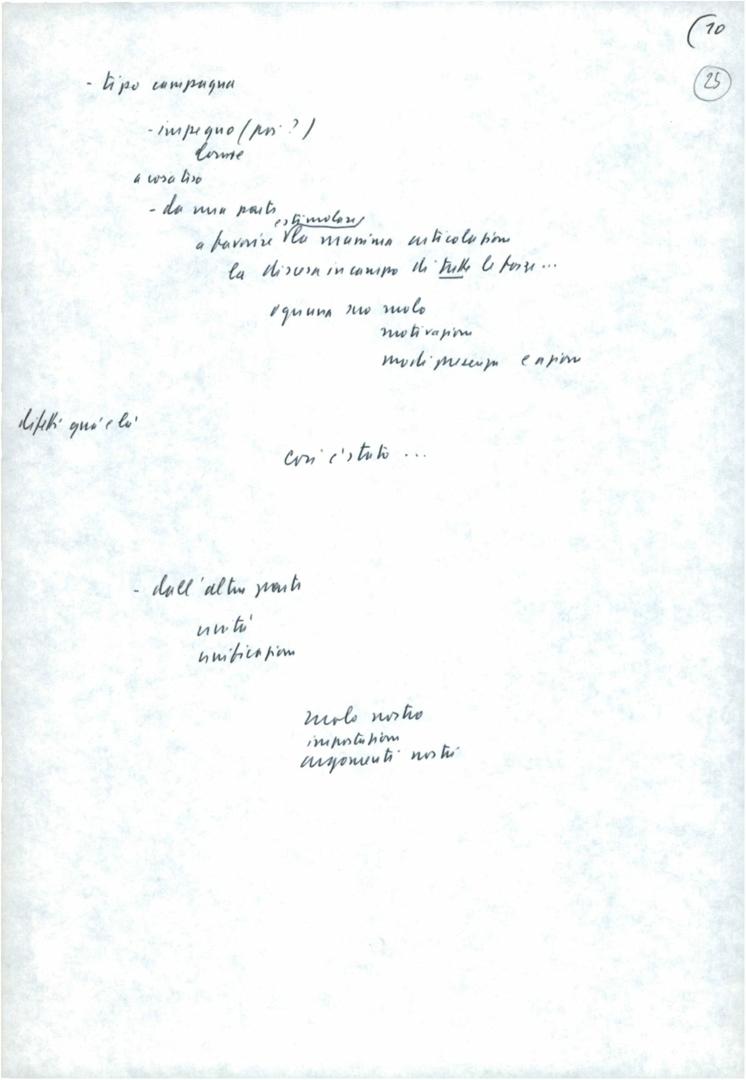 (10
25
- tipo campagna
- impegno (poi?)
come
a cosa tiro
- da una parte
e stimolare
a favorire la massima articolazione
la discesa in campo di tutte le forze...
ognuna suo ruolo
motivazioni
modi presenza e azione
difetti qui e là
così è stato ...
- dall'altra parte
unità
unificazione
ruolo nostro
impostazione
argomenti nostri